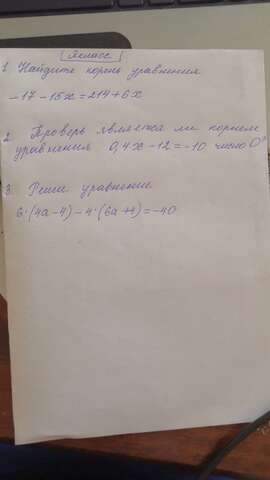 7класс
1. Найдите корень уравнения
-17-15x=214+6x
2. Проверь является ли корнем
уравнения 0,4x-12=-10 число 0
3. Реши уравнение
6·(4a-4)-4·(6a+4)=-40